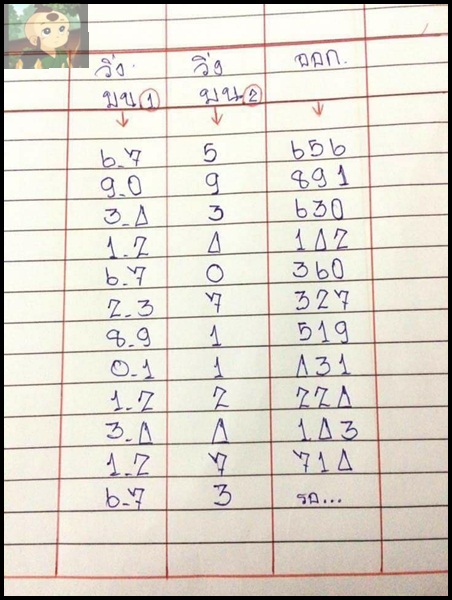 วิ่ง วิ่ง ออก.
บน ① บน ②
6-7 5 656
9-0 9 891
3-4 3 630
1-2 4 142
6-7 0 360
2-3 7 327
8-9 1 519
0-1 1 431
1-2 2 224
3-4 4 143
1-2 7 714
6-7 3 รอ...